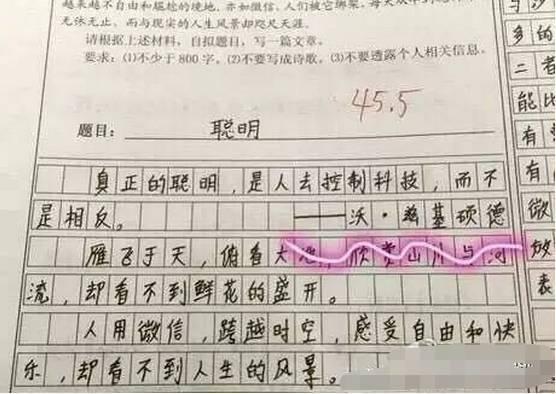 越来越不自由和尴尬的境地。亦如微信,人们被它绑架,每天
无休无止,而与现实的人生风景却咫尺天涯。
请根据上述材料,自拟题目,写一篇文章。
要求:(1)不少于800字,(2)不要写成诗歌。(3)不要透露个人相关信息。
45.5
题目: 聪明
真正的聪明,是人去控制科技,而不
是相反。 ——沃·兹基硕德
雁飞于天,俯看大地,欣赏山川与河
流,却看不到鲜花的盛开。
人用微信,跨越时空,感受自由和快
乐,却看不到人生的风景。
与
多的
二者
能比
有
有
微
放
表